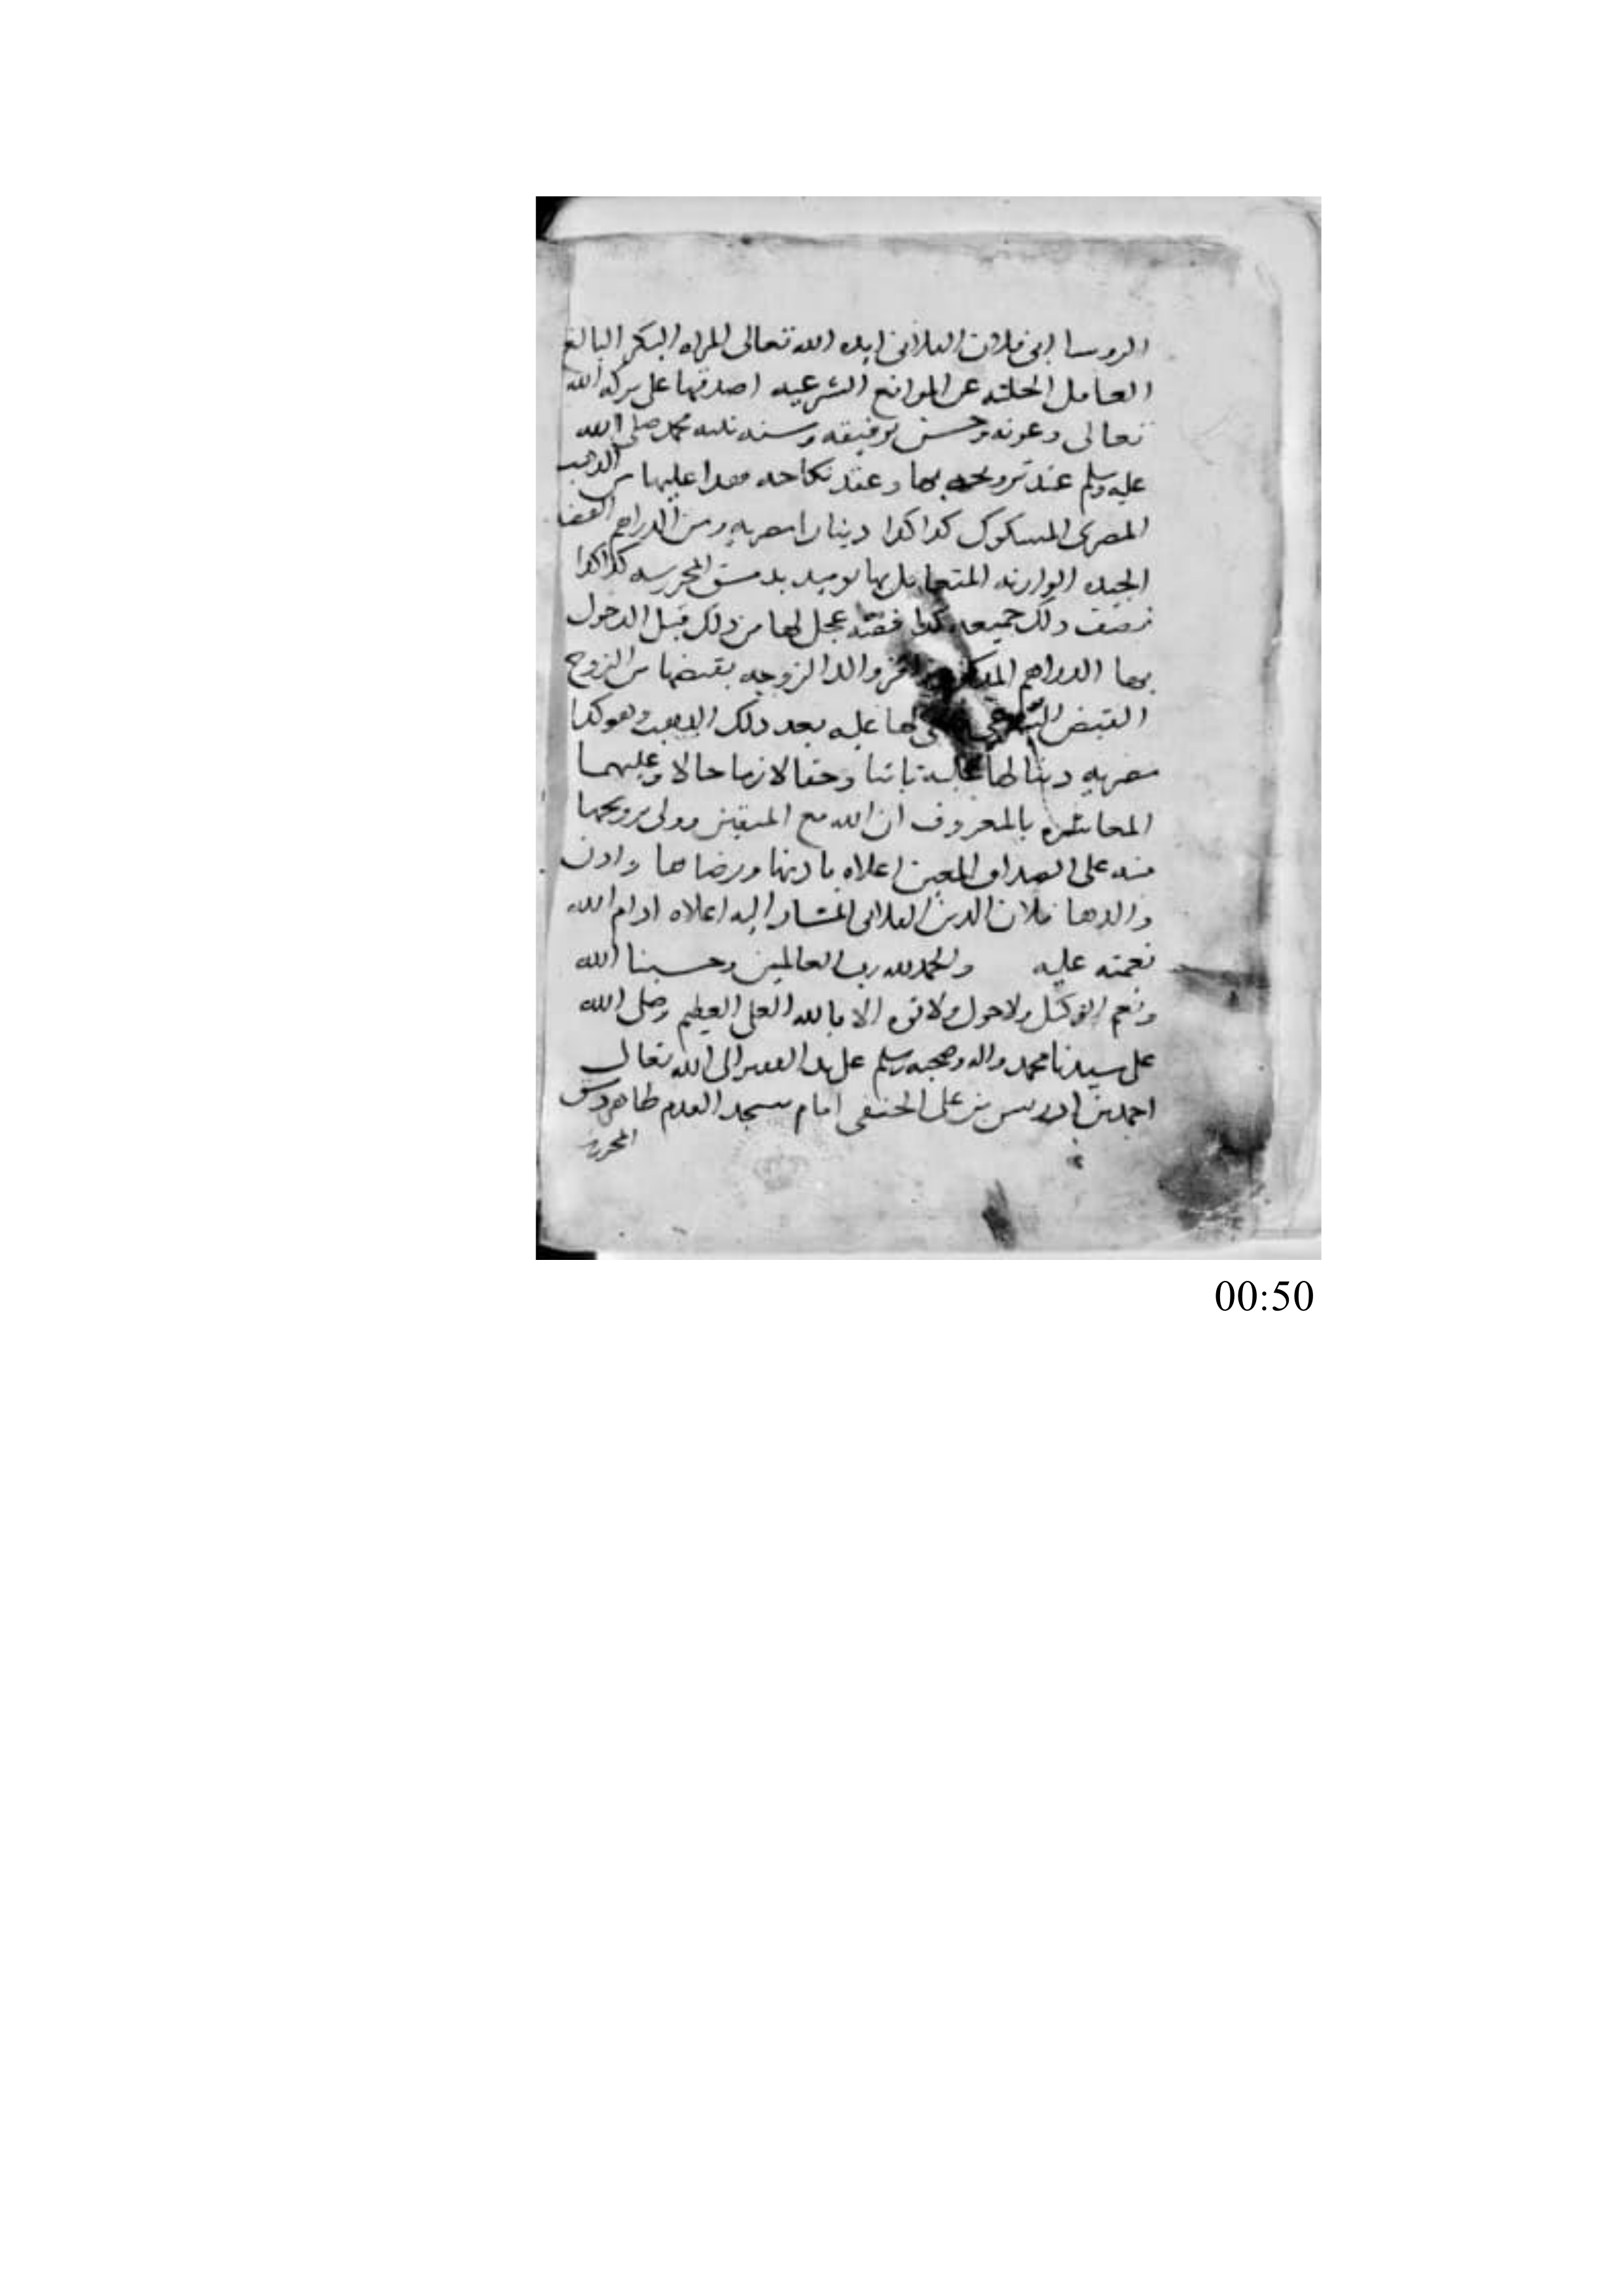 الروسا ابى فلان الفلانى ايده الله تعالى المراه البكر البالغ
العامل الخليه عن الموانع الشرعيه اصدقها على بركه الله
تعالى وعونه وحسن توفيقه وسنه نبيه محمد صلى الله
عليه وسلم عند تزويجه بها وعقد نكاحه عليها من الذهب
المصرى المسكوك كدا كدا دينارا مصريه ومن الدراهم الفضه
الجيده الوازنه المتعامل بها يوميد بدمشق المحروسه كدا كدا
نصف ذلك جميعه كدا فضه عجل لها من ذلك قبل الدخول
بها الدراهم والد الزوجه بقبضها من الزوج
القبض الشرعى لها عليه بعد ذلك الذهب وهو كدا
مصريه دينا لها عليه ثابتا وحقا لازما حالا وعليهما
المعاشره بالمعروف ان الله مع المتقين وولى تزويجها
منه على الصداق المعين اعلاه بادنها ورضاها وادن
والدها فلان الدين الفلانى المشار اليه اعلاه ادام الله
نعمته عليه والحمد لله رب العالمين وحسبنا الله
ونعم الوكيل ولا حول ولا قوه الا بالله العلى العظيم وصلى الله
على سيدنا محمد واله وصحبه وسلم على يد الفقير الى الله تعالى
احمد بن ادريس بن على الحنفى امام مسجد القدم ظاهر دمشق
المحروسه
00:50